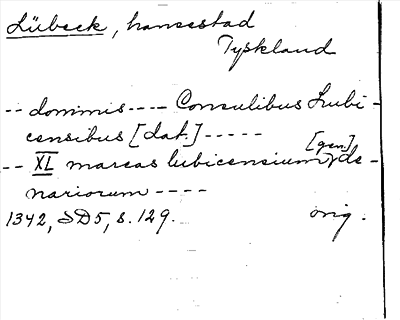 Lübeck, hansestad
Tyskland
-- dominis ---- Consulibus Lubi-
censibus [dat.] -----
-- XL marcas lubicensium [gen.] de-
nariorum ----
1342, SD5, s. 129. orig.